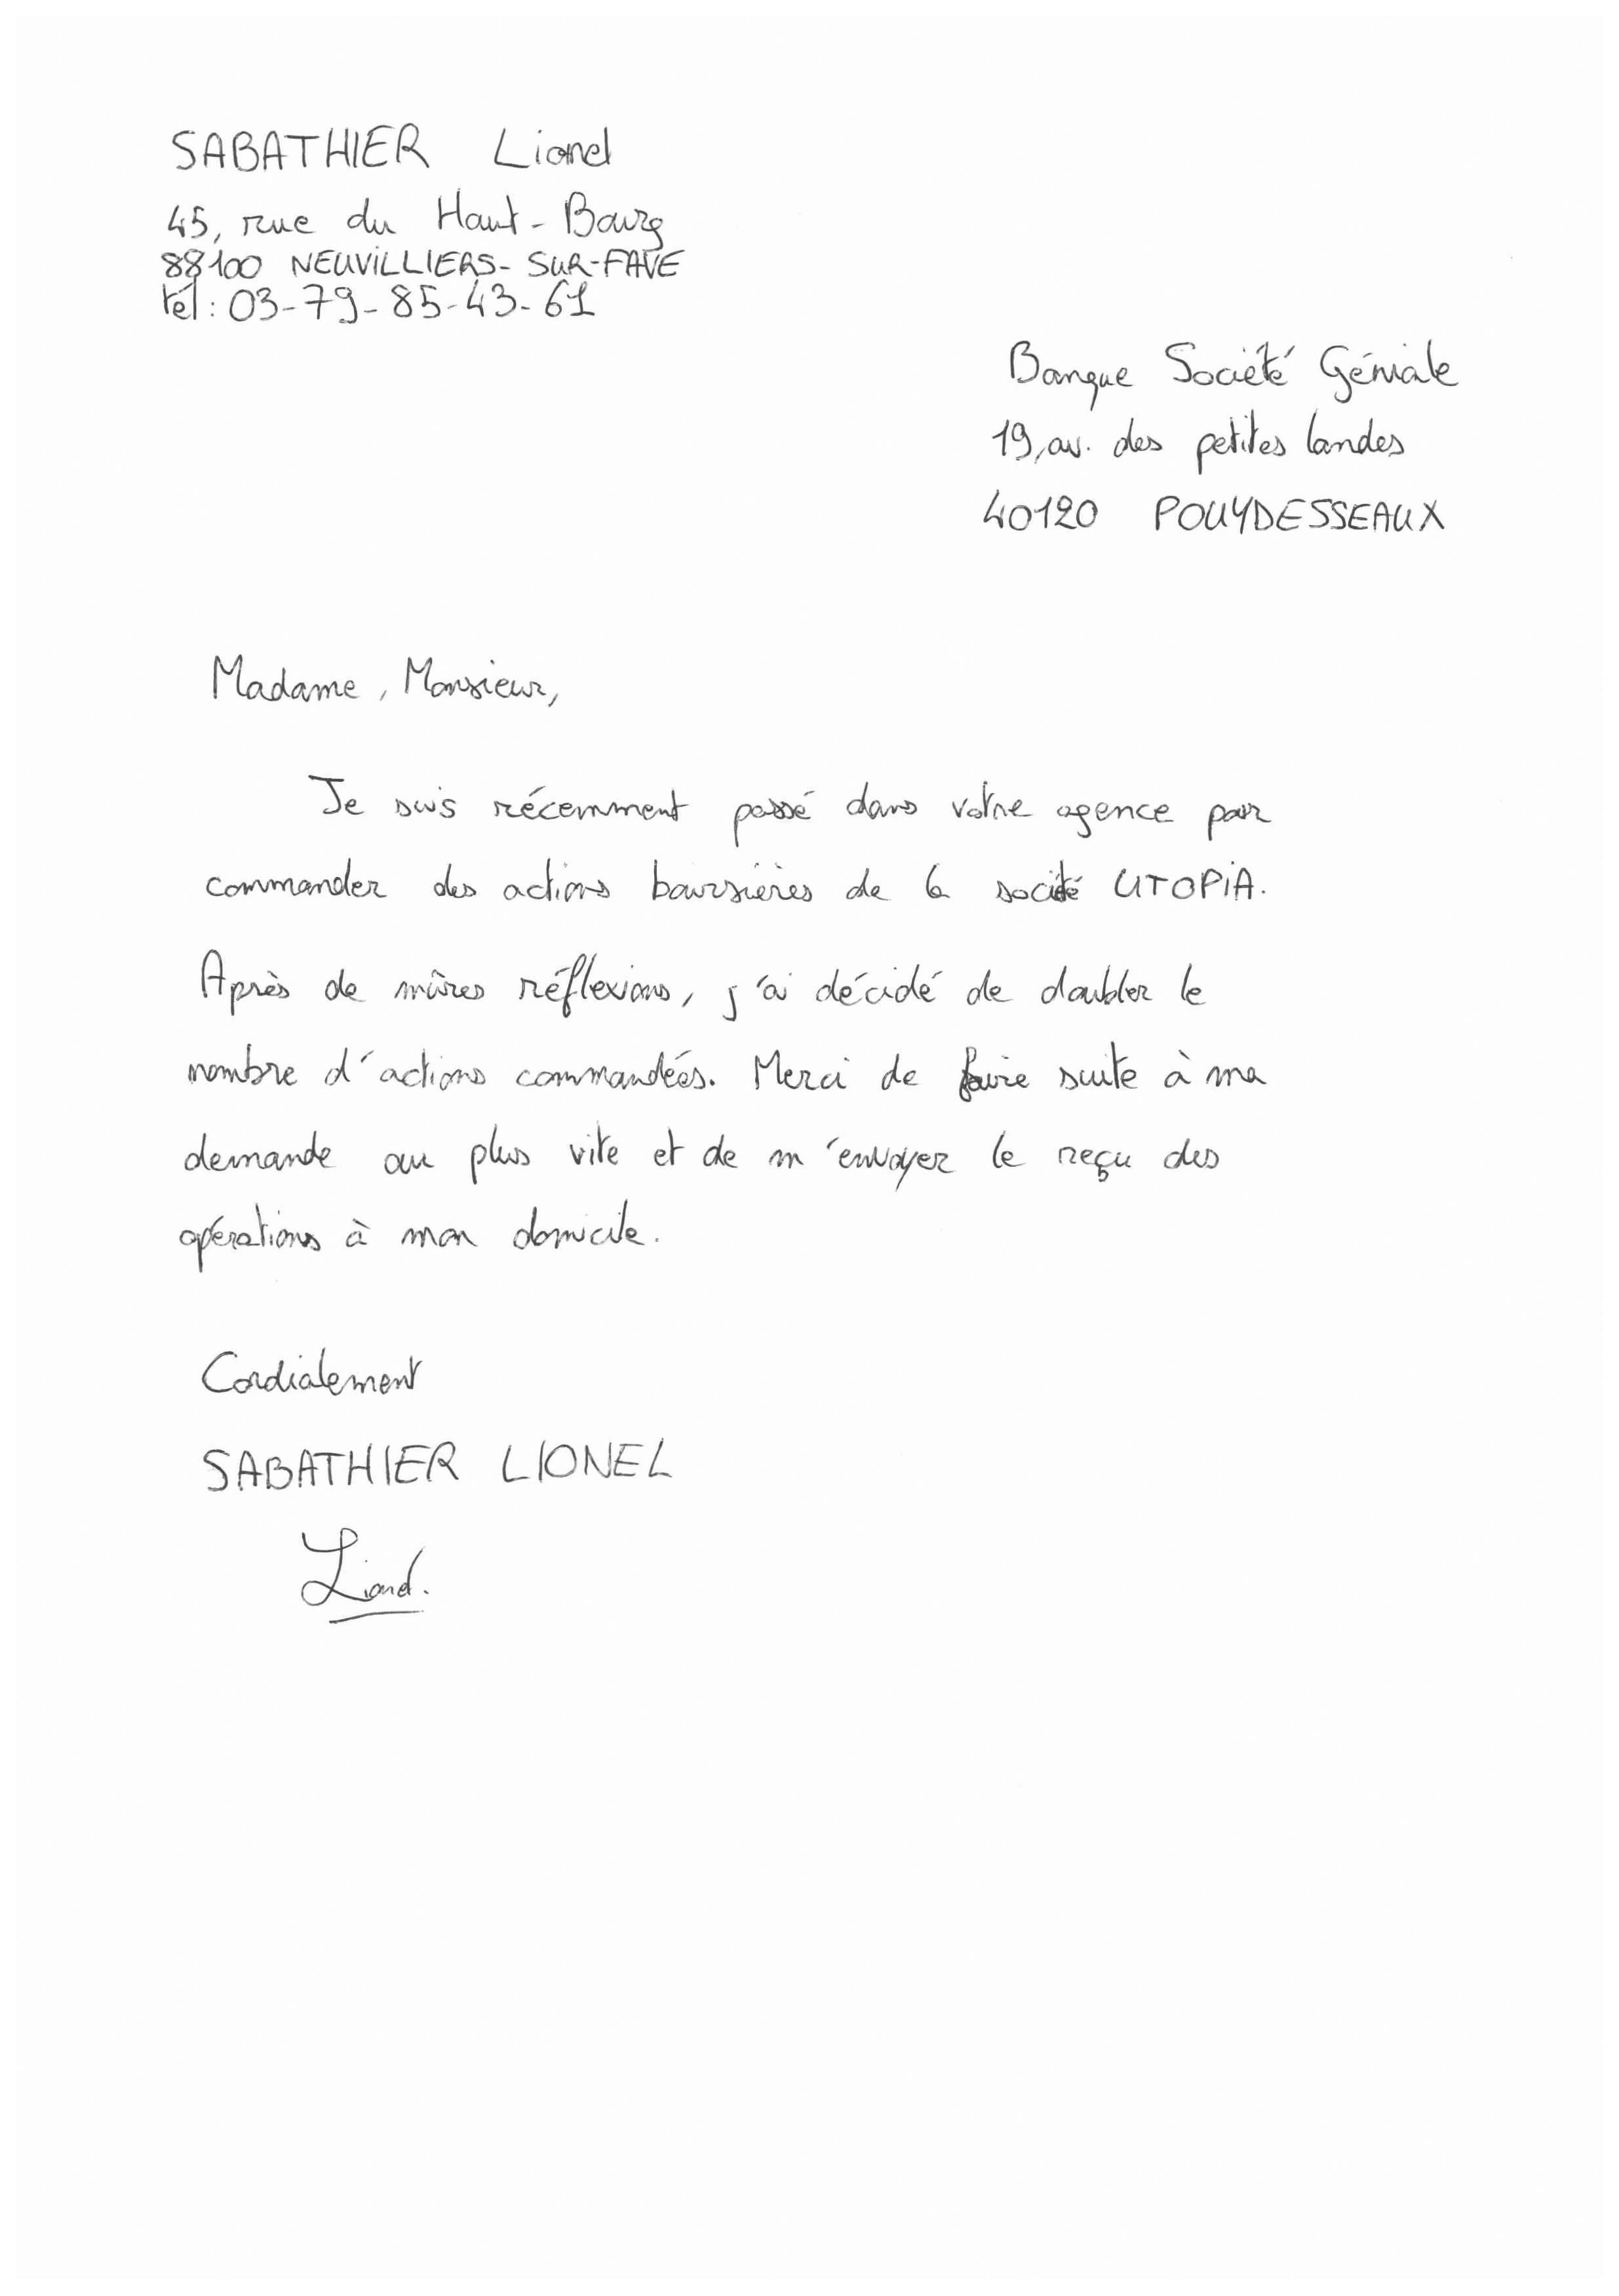 SABATHIER Lionel
45, rue du Haut-Bourg
88100 NEUVILLIERS-SUR-FAVE
tél : 03-79-85-43-61
Banque Société Géniale
19, av. des petites landes
40120 POUYDESSEAUX
Madame, Monsieur,
Je suis récemment passé dans votre agence pour
commander des actions boursières de la société UTOPIA.
Après de mûres réflexions, j'ai décidé de doubler le
nombre d'actions commandées. Merci de faire suite à ma
demande au plus vite et de m'envoyer le reçu des
opérations à mon domicile.
Cordialement
SABATHIER LIONEL
Lionel.